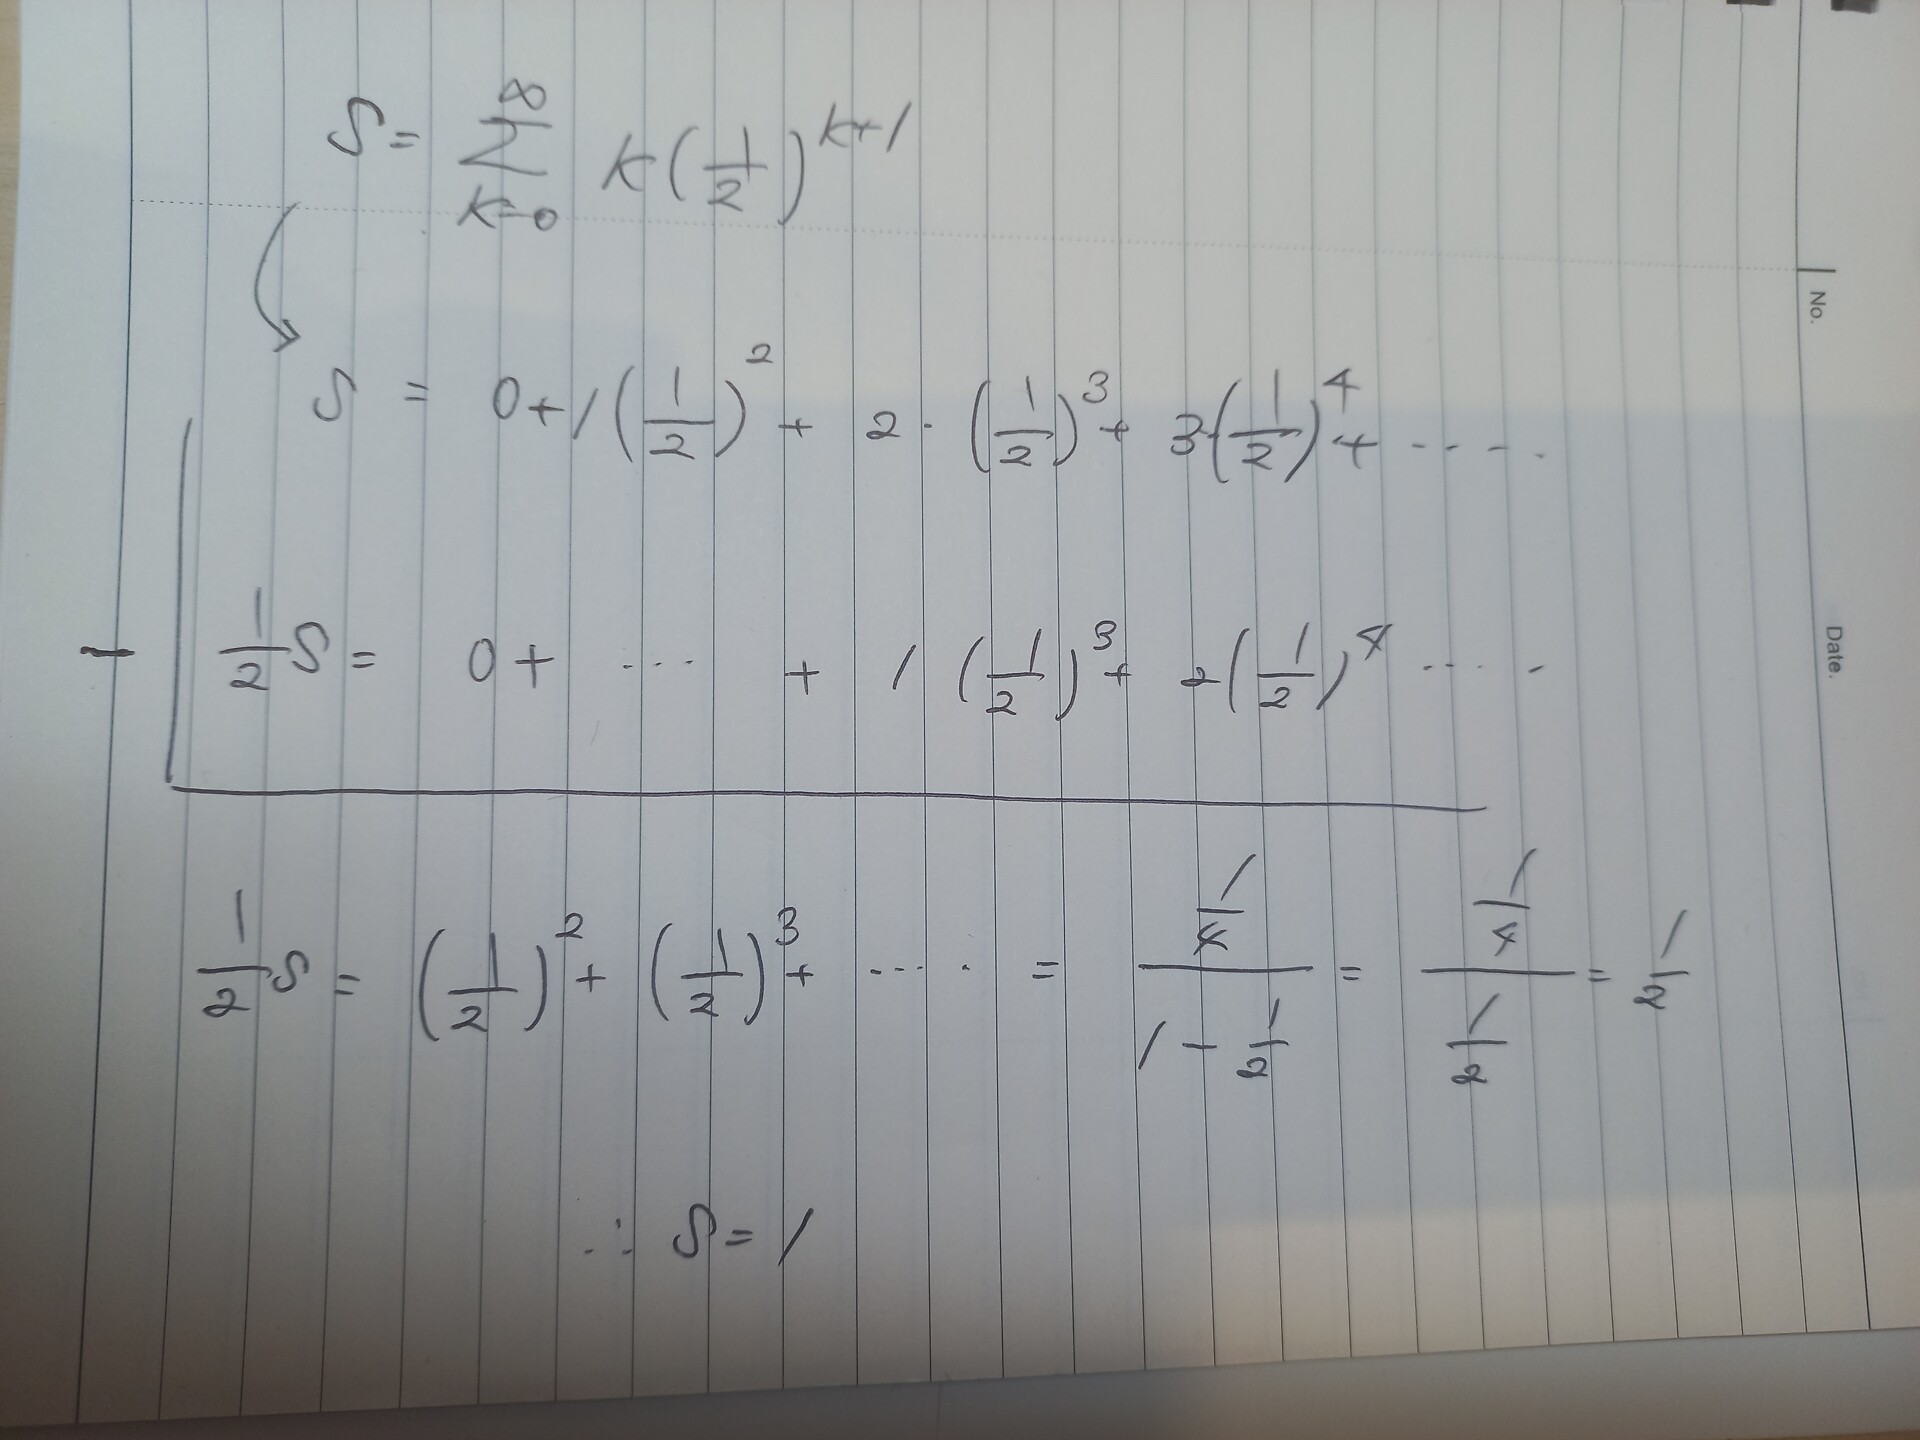 S = ∑_{k=0}^{∞} k(1/2)^{k+1}
S = 0 + 1(1/2)^2 + 2·(1/2)^3 + 3(1/2)^4 + ·····
− 1/2 S = 0 + ··· + 1(1/2)^3 + 2(1/2)^4 ·····
1/2 S = (1/2)^2 + (1/2)^3 + ···· = (1/4)/(1 − 1/2) = (1/4)/(1/2) = 1/2
∴ S = 1
No.
Date.